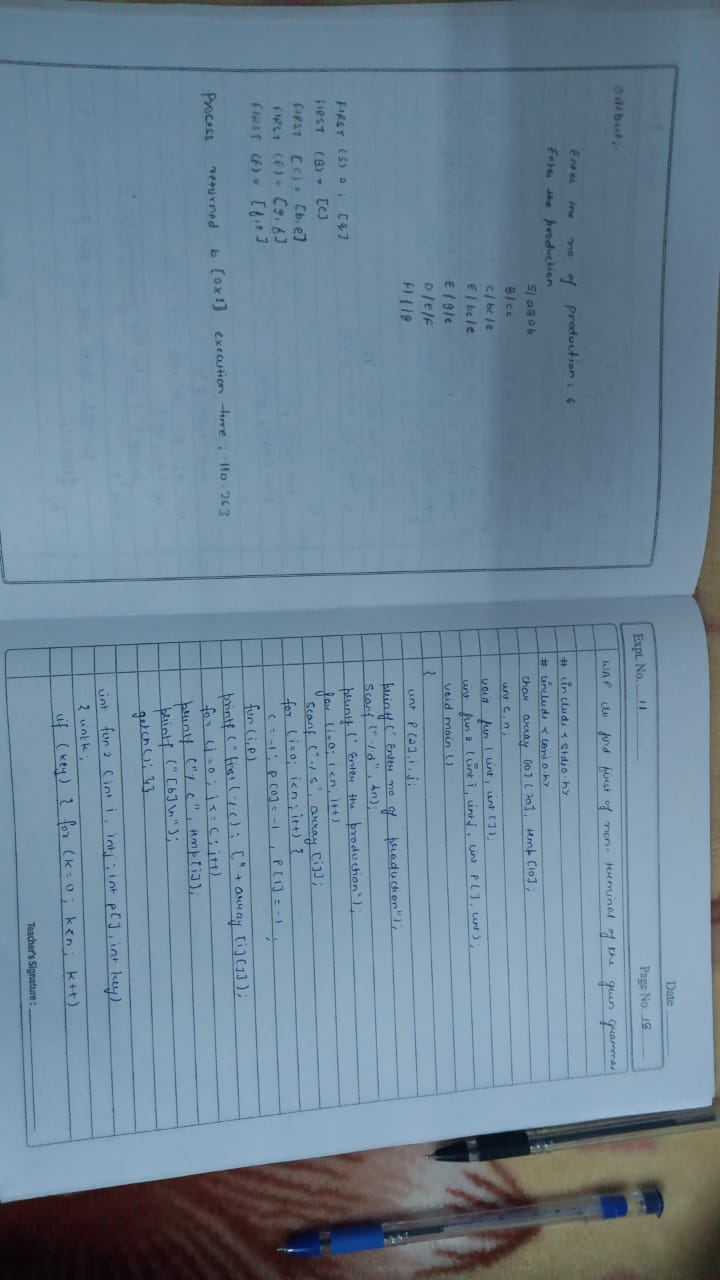 Output:-
Enter the no of production: 6
Enter the production
S/aBDb
B/cc
C/bc/e
E/bc/e
E/g/e
D/E/F
F/f/g
FIRST (B) = [c]
FIRST (C) = [b,e]
Process returned 6 [0x1] execution time: 110.263
Date
Expt. No. 11
Page No. 18
WAP to find first of non-terminal of the given grammar
# include < stdio.h>
# include < conio.h>
char array [10] [20], temp [10];
int c, n;
void fun (int, int[]);
int fun 2 (int i, int j, int P[], int);
void main ()
{
int P[2], i, j;
printf (" Enter no of production");
scanf ("%d", &n);
printf (" Enter the production");
for (i=0; i<n; i++)
scanf ("%s", array [i]);
for (i=0; i<n; i++) {
c = -1; P[0] = -1, P[1] = -1;
fun (i,P)
printf (" first (%c): [" + array [i][j]);
for (j=0; j<=c; j++)
printf ("%c", temp [i]);
printf ("[b]\n");
getch (); }}
int fun 2 (int i, int j, int P[], int key)
{ int k;
if (key) { for (k=0; k<n; k++)
Teacher's Signature :